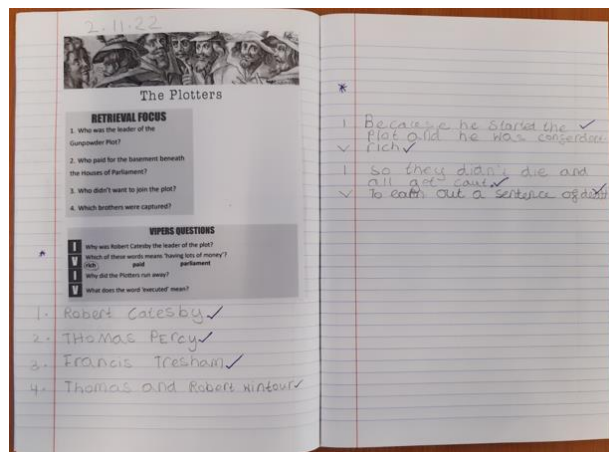 2.11.22
The Plotters
RETRIEVAL FOCUS
1. Who was the leader of the
Gunpowder Plot?
2. Who paid for the basement beneath
the Houses of Parliament?
3. Who didn't want to join the plot?
4. Which brothers were captured?
VIPERS QUESTIONS
I Why was Robert Catesby the leader of the plot?
V Which of these words means 'having lots of money'?
rich paid parliament
I Why did the Plotters run away?
V What does the word 'executed' mean?
1. Robert Catesby
2. THoMas PErcy
3. Francis Tresham
4. Thomas and Robert Wintour
I Because he Started the
Plot and he was
V rich
I so they didn't die and
all got
V To out a sentence of